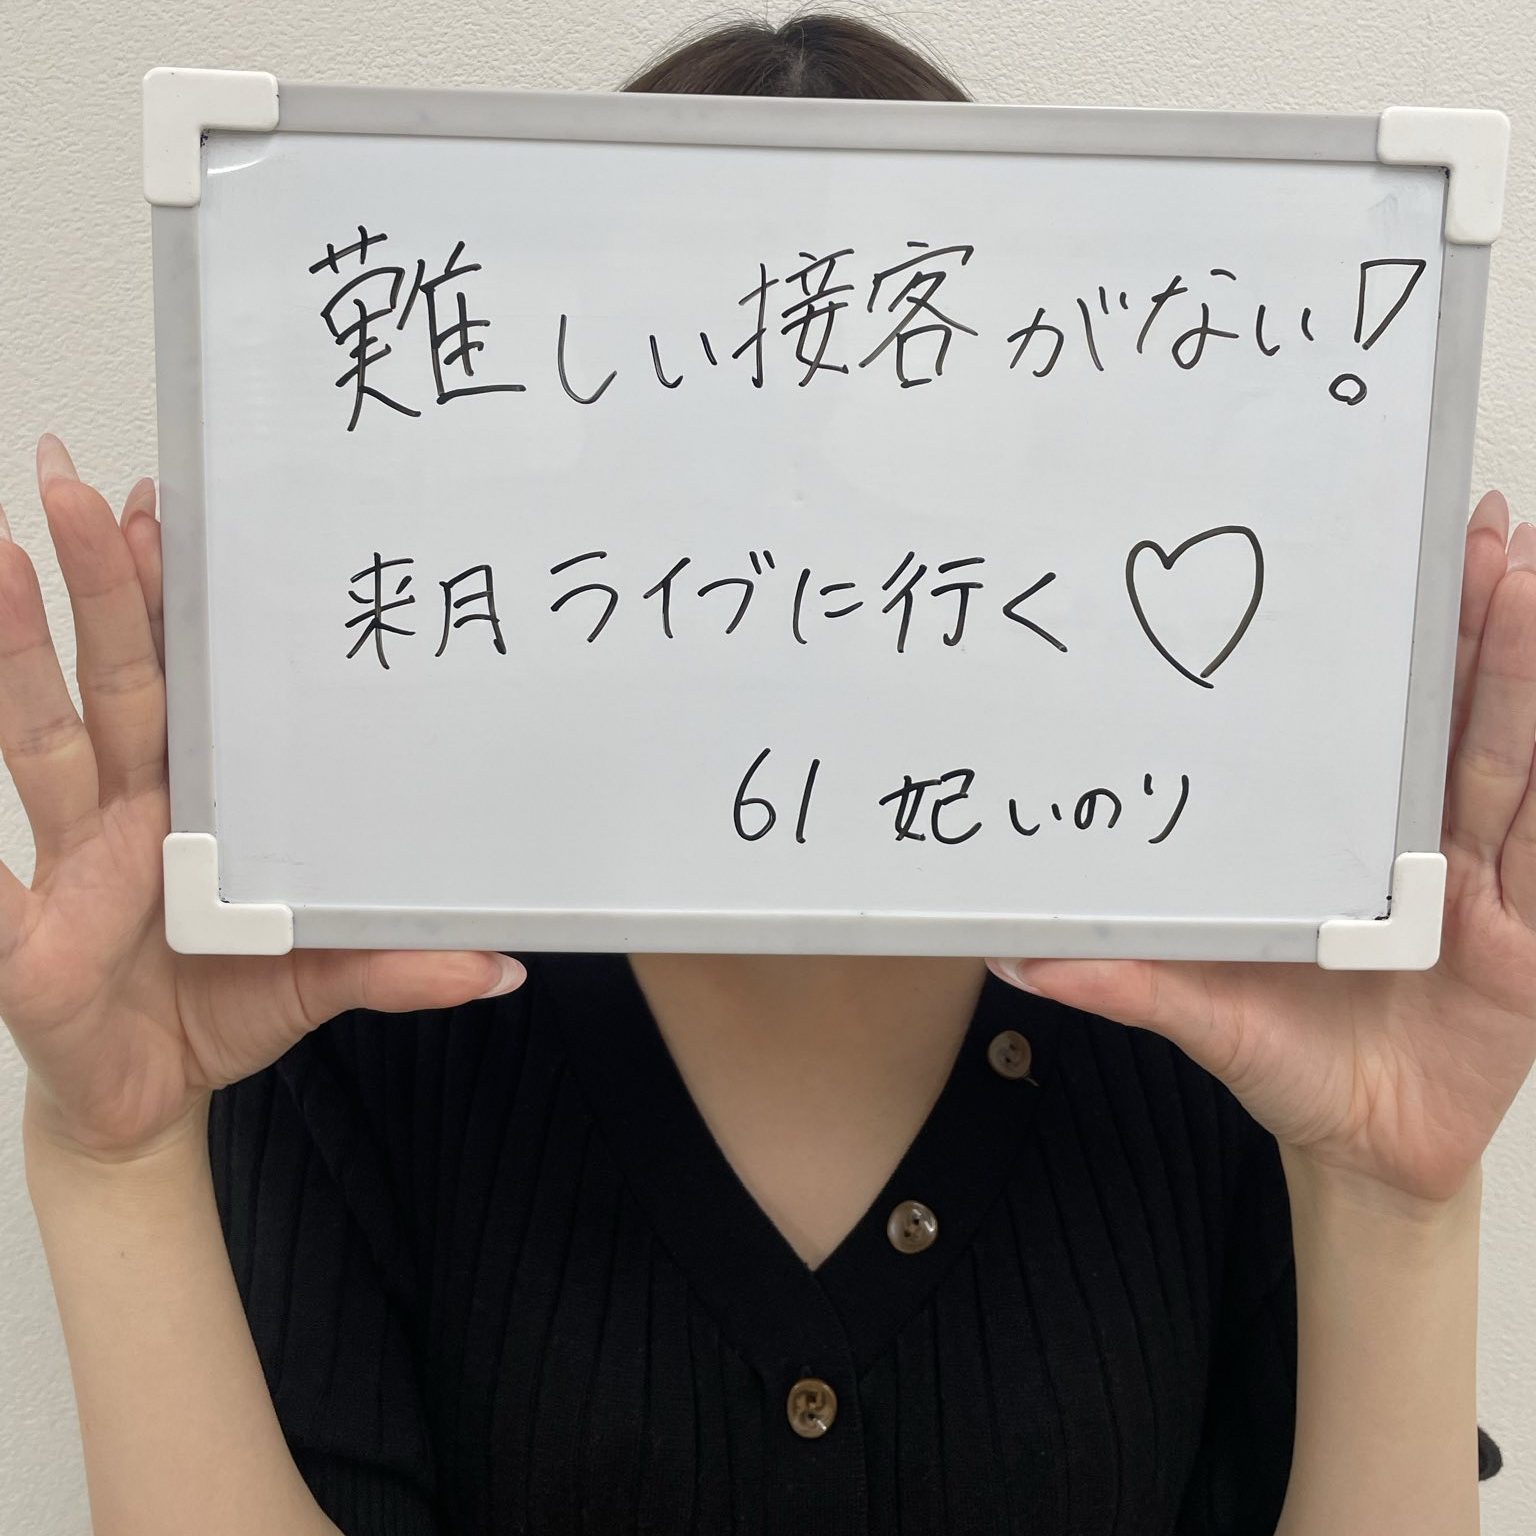 難しい接客がない!
来月ライブに行く♡
61 妃いのり